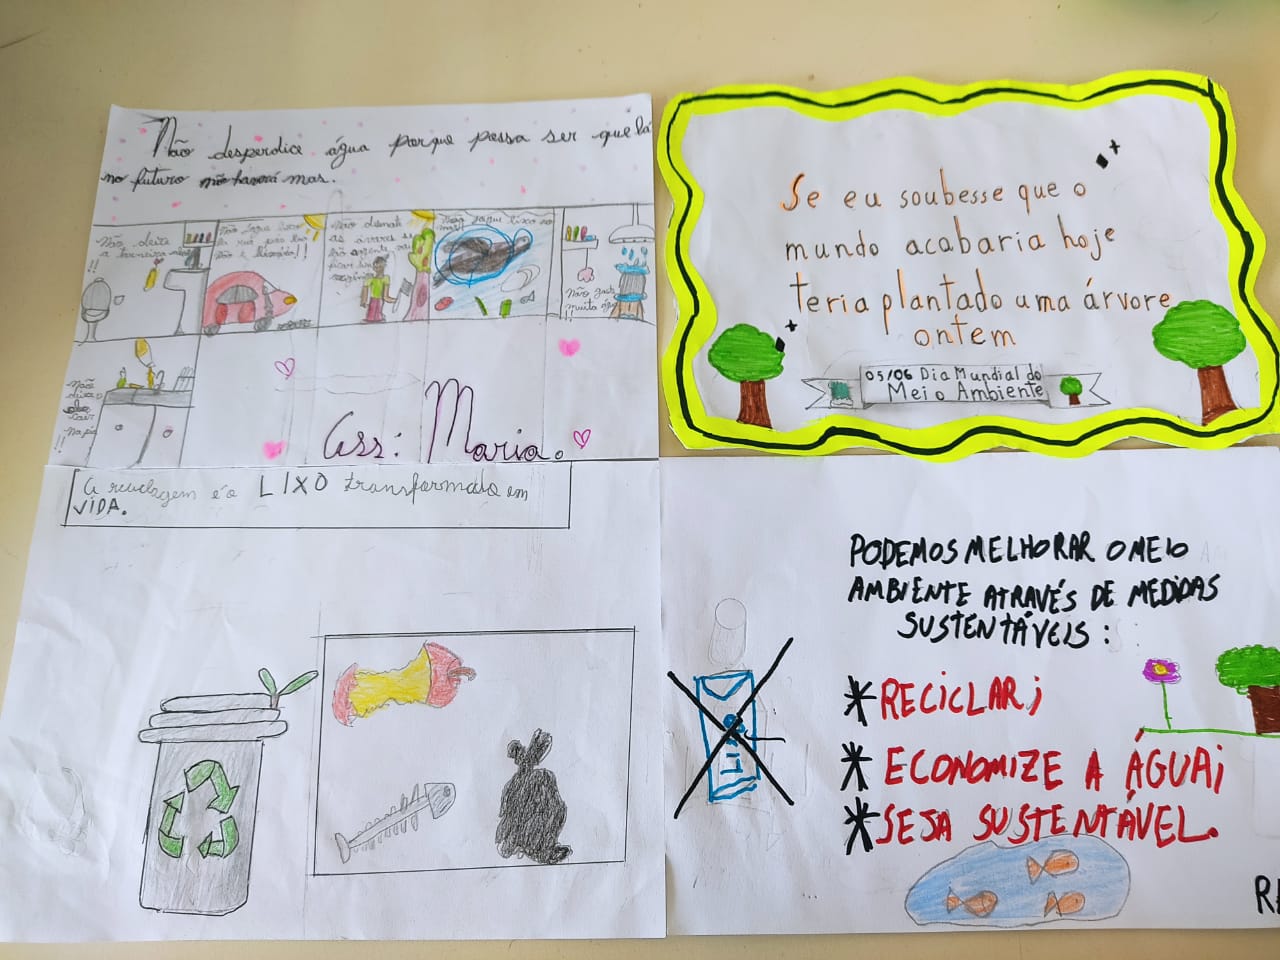 Não desperdice água porque possa ser que lá
no futuro não haverá mas.
Não deixe
a torneira
!!
Não jogue lixo
na rua pois
não é lixeira!!
Não desmate
as árvores se
não a gente vai
ficar sem
oxigênio
Não jogue lixo no
mar!!
Não gaste
muita água
!!
Não
deixe o
óleo
cair
na pia
!!
Ass: Maria.
Se eu soubesse que o
mundo acabaria hoje
teria plantado uma árvore
ontem
05/06 Dia Mundial do
Meio Ambiente
A reciclagem é o LIXO transformado em
VIDA.
PODEMOS MELHORAR O MEIO
AMBIENTE ATRAVÉS DE MEDIDAS
SUSTENTÁVEIS:
*RECICLAR;
*ECONOMIZE A ÁGUA;
*SEJA SUSTENTÁVEL.